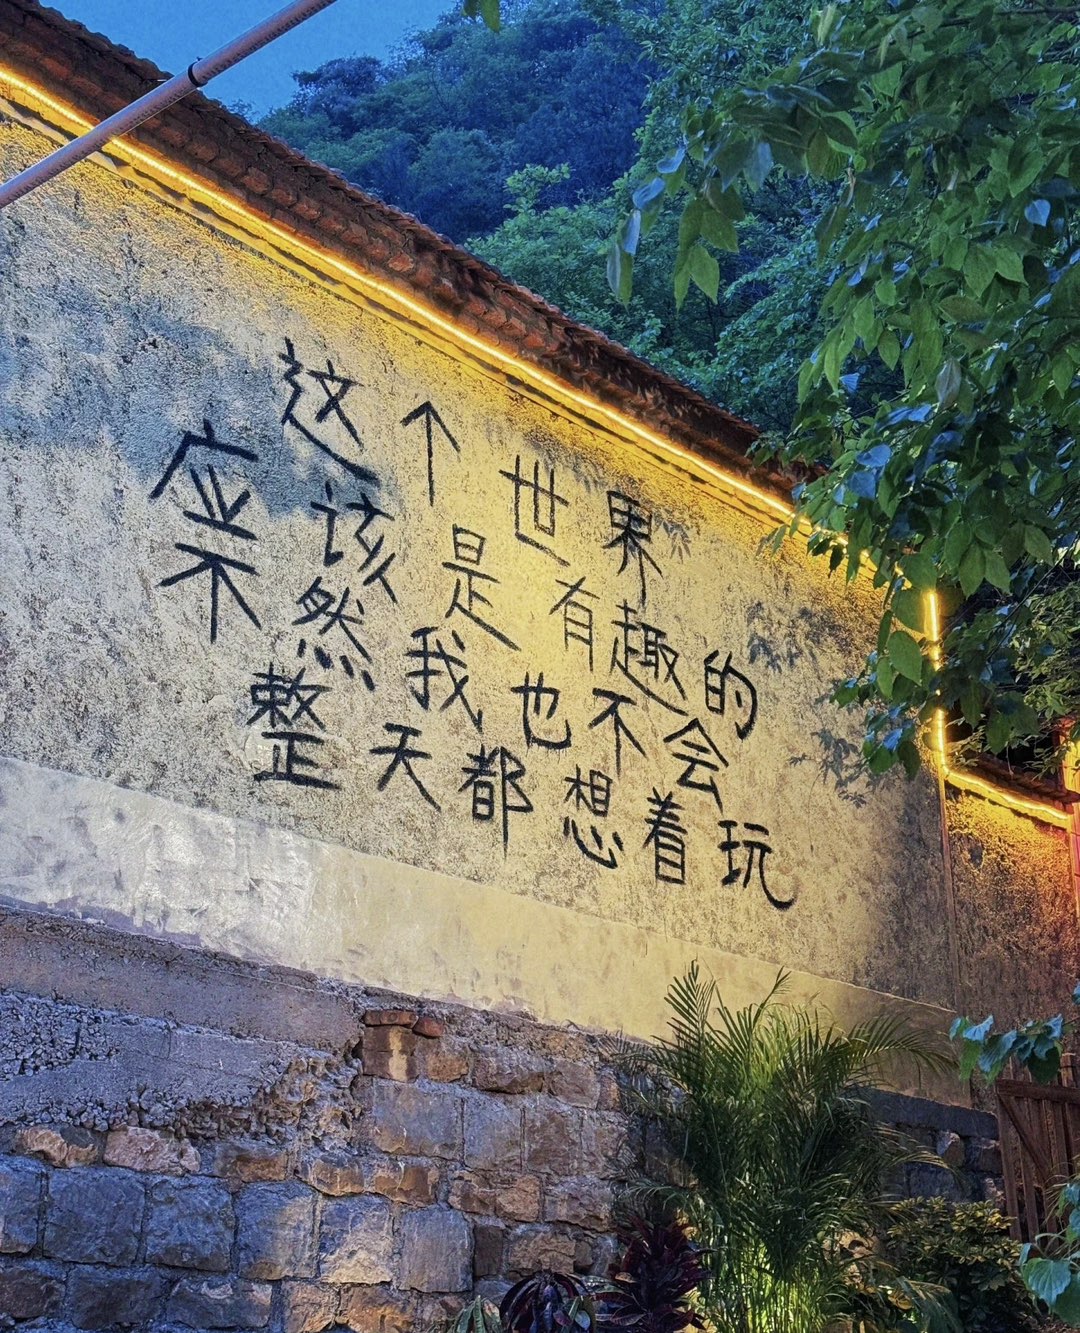 这个世界
应该是有趣的
不然我也不会
整天都想着玩